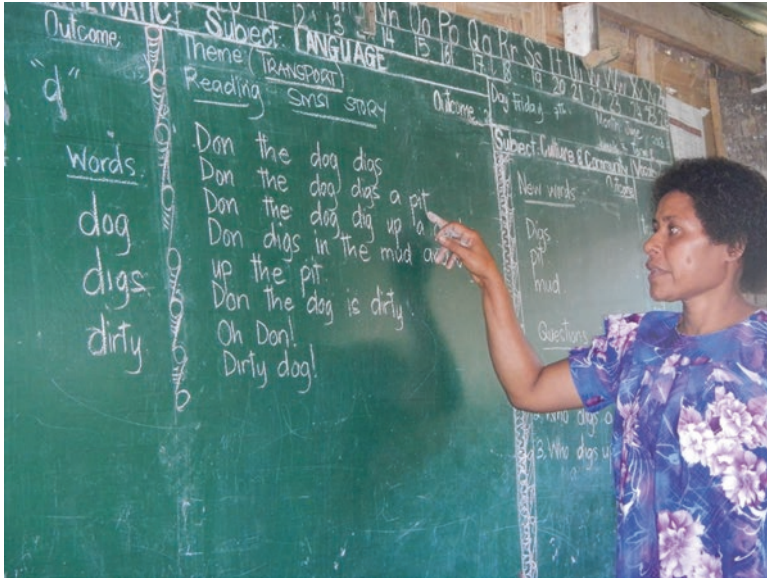 Outcome
"d"
Words
dog
digs
dirty
Subject: LANGUAGE
Theme (TRANSPORT)
Reading - SMSI STORY
Outcome
Don the dog digs
Don the dog digs a pit
Don the dog dig up a
Don digs in the mud
up the pit.
Don the dog is dirty.
Oh Don!
Dirty dog!
12 13 14 15 16 17 18 19 20 21 22 23
Nn Oo Pp Qq Rr Ss Tt Uu Vv Ww Xx
Day Friday
Month
Subject: Culture & Community
New words
Digs
pit
mud
Questions
Who digs
3. Who digs